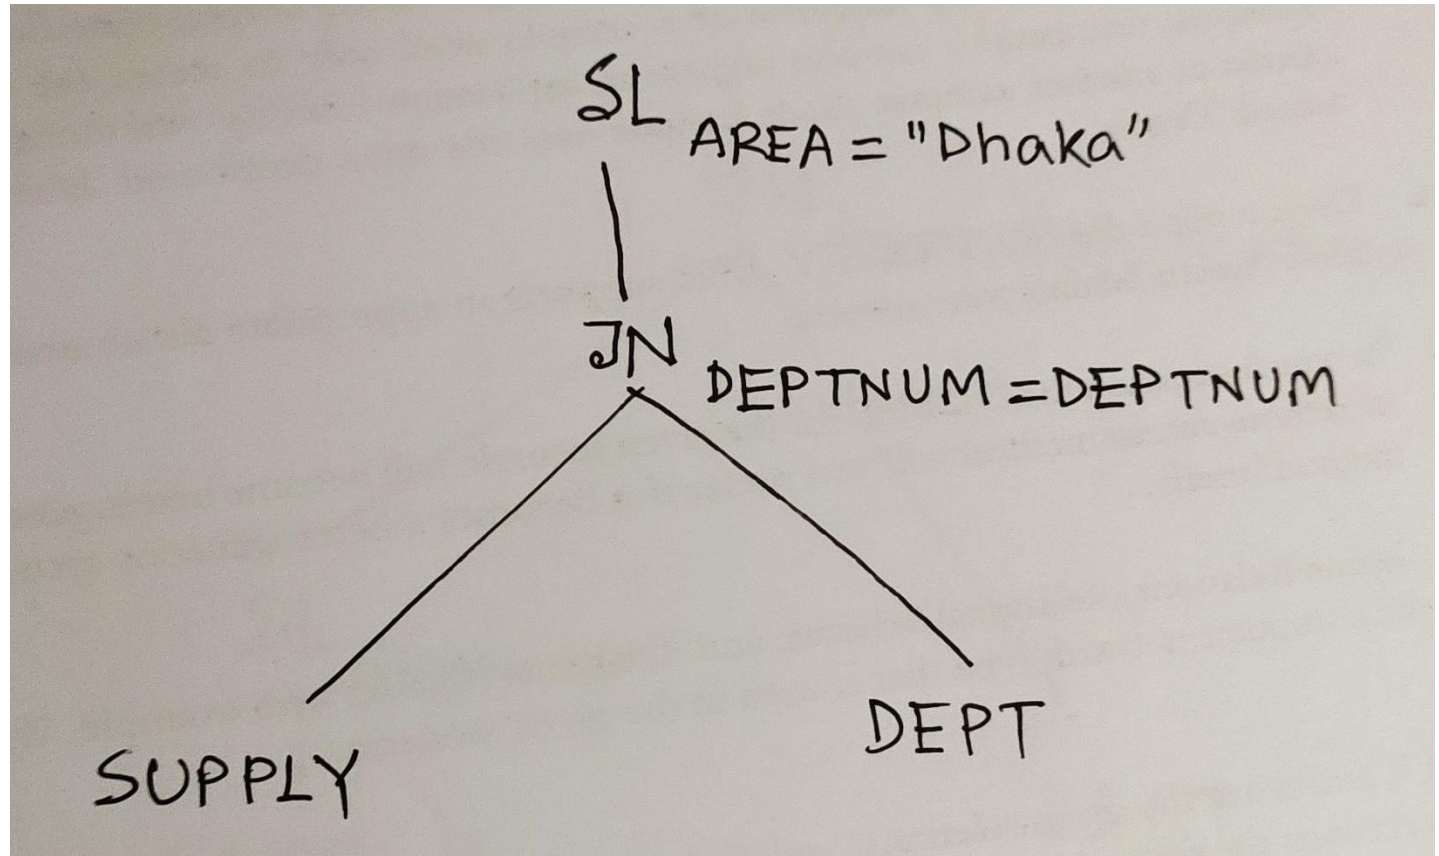 SL
AREA = "Dhaka"
JN
DEPTNUM = DEPTNUM
SUPPLY
DEPT